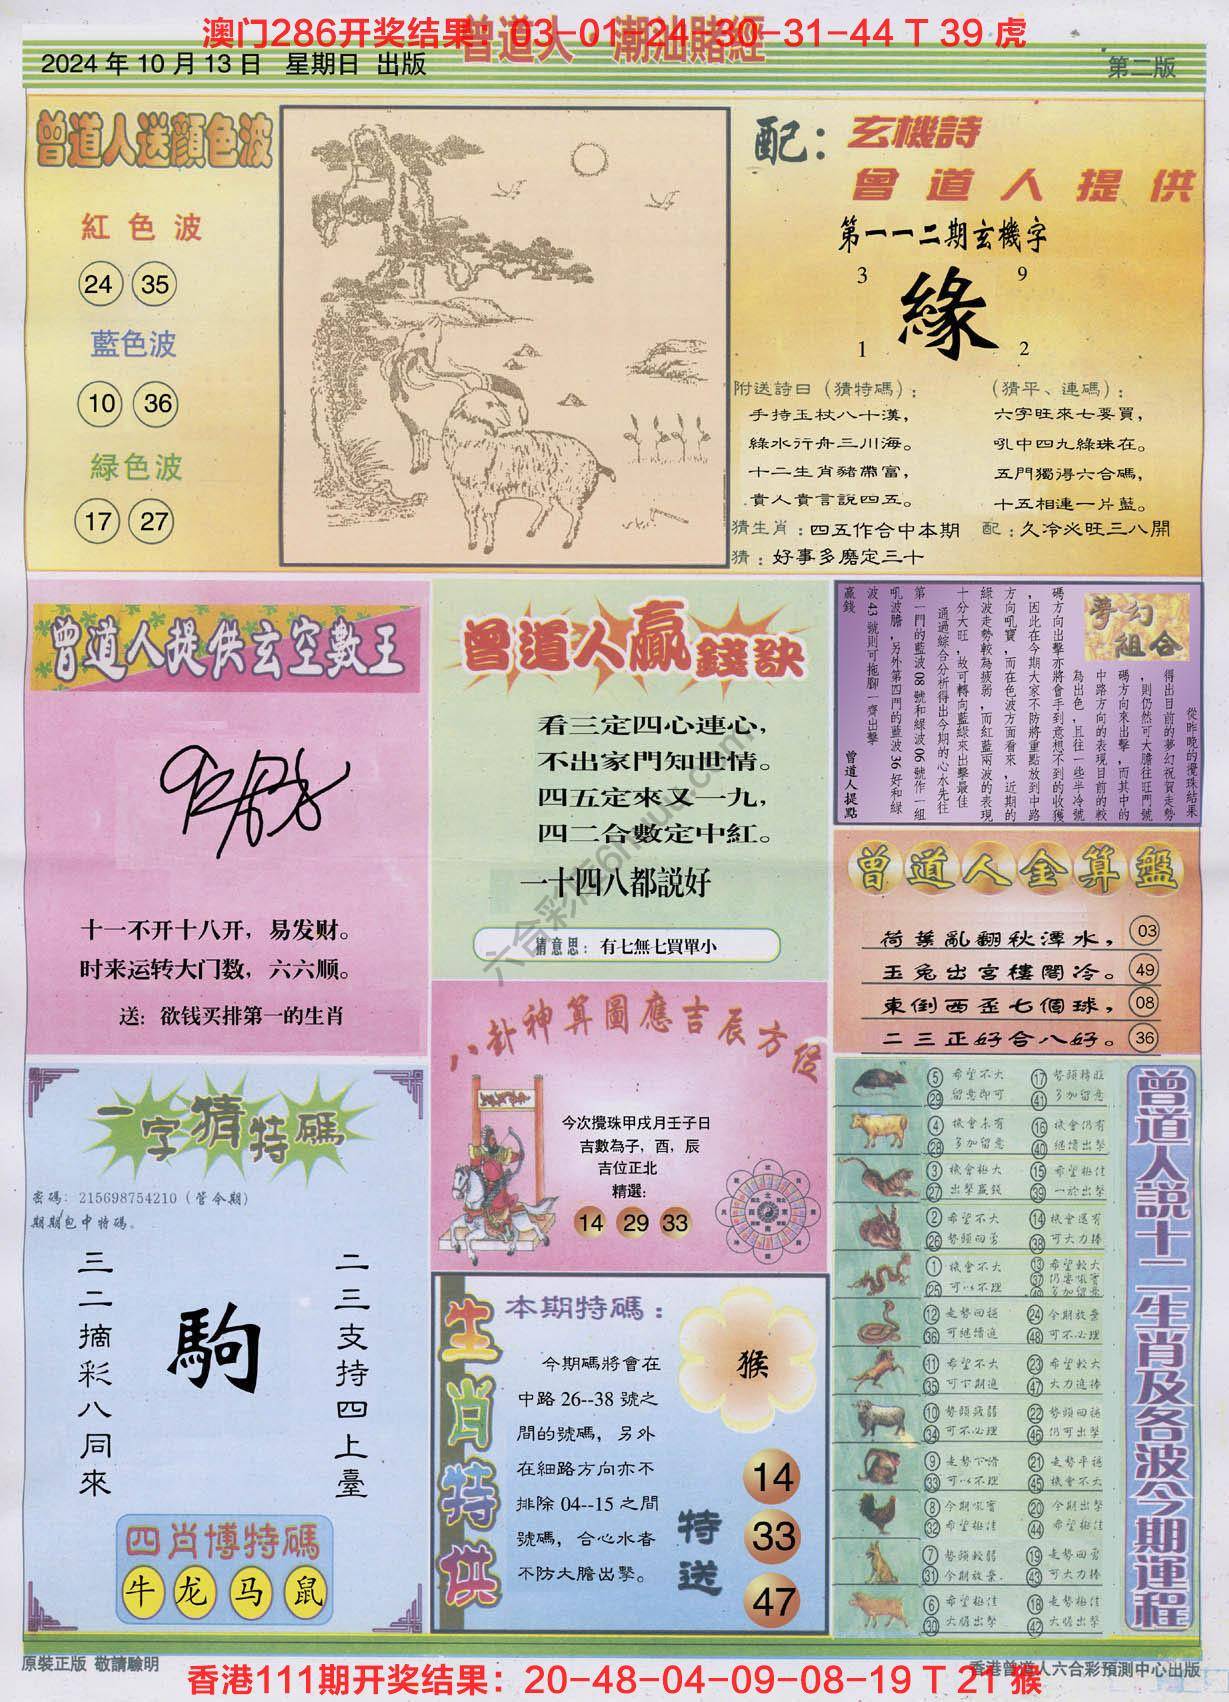 澳门286开奖结果：03-01-24-30-31-44 T 39 虎
曾道人 潮汕賭經
2024 年 10 月 13 日 星期日 出版
第二版
曾道人送顏色波
紅色波
24 35
藍色波
10 36
緑色波
17 27
配：玄機詩
曾道人提供
第一一二期玄機字
3 9
緣
1 2
附送詩曰（猜特碼）：
手持玉杖八十漢，
綠水行舟三川海。
十二生肖豬帶富，
貴人貴言說四五。
（猜平、連碼）：
六字旺來七要買，
吼中四九綠珠在。
五門獨得六合碼，
十五相連一片藍。
猜生肖：四五作合中本期 配：久冷必旺三八開
猜：好事多磨定三十
曾道人提供玄空數王
十一不开十八开，易发财。
时来运转大门数，六六顺。
送：欲钱买排第一的生肖
曾道人贏錢訣
看三定四心連心，
不出家門知世情。
四五定來又一九，
四二合數定中紅。
一十四八都説好
猜意思：有七無七買單小
夢幻組合
從昨晚的攪珠結果
得出目前的夢幻祝賀走勢
，則仍然可大膽往旺門號
碼方向來出擊，而其中的
中路方向的表現目前的較
為出色，且往一些半冷號
碼方向出擊亦將會手到意想不到的收獲
，因此在今期大家不防將重點放到中路
方向吼寶，而在色波方面看來，近期的
綠波走勢較為疲弱，而紅藍兩波的表現
十分大旺，故可轉向藍綠來出擊最佳
通過綜合分析得出今期的心水先往
第一門的藍波08號和緑波06號作一組
吼波膽，另外第四門的藍波36好和綠
波43號則可拖腳一齊出擊
贏錢
曾道人提點
曾道人金算盤
荷葉亂翻秋潭水， 03
玉兔出宮樓閣冷。 49
東倒西歪七個球， 08
二三正好合八好。 36
八卦神算圖應吉辰方位
今次攪珠甲戌月壬子日
吉數為子，酉，辰
吉位正北
精選：
14 29 33
一字猜特碼
密碼：215698754210（管令期）
期期包中特碼。
三二摘彩八同來
駒
二三支持四上臺
四肖博特碼
牛 龙 马 鼠
生肖特供
本期特碼：
今期碼將會在
中路 26--38 號之
間的號碼，另外
在細路方向亦不
排除 04--15 之間
號碼，合心水者
不防大膽出擊。
猴
特送
14
33
47
曾道人説十二生肖及各波今期運程
5 希望不大 17 勢頭轉旺
29 留意即可 41 多加留意
4 機會未有 16 機會仍有
28 多加留意 40 繼續出擊
3 機會極大 15 希望極佳
27 出擊贏錢 39 一於出擊
2 希望不大 14 機會還有
26 勢頭回勇 38 可大力捧
1 機會不大 13 希望較大
25 可以不理 37
12 走勢回穩 24 今期放棄
36 可繼續追 48 可不必理
11 希望不大 23 希望較大
35 可下期進 47 大力進捧
10 勢頭疲弱 22 勢頭回穩
34 可不必理 46 仍可出擊
9 走勢下滑 21 走勢平穩
33 可以不理 45 機會不大
8 今期吼寶 20 今期出擊
32 希望極佳 44 希望極佳
7 勢頭較弱 19 走勢回勇
31 今期放棄. 43 可大力捧
6 希望極佳 18 走勢極佳
30 大膽出擊 42 大膽出擊
六合彩库6huu.com
原裝正版 敬請驗明
香港曾道人六合彩預測中心出版
香港111期开奖结果：20-48-04-09-08-19 T 21 猴